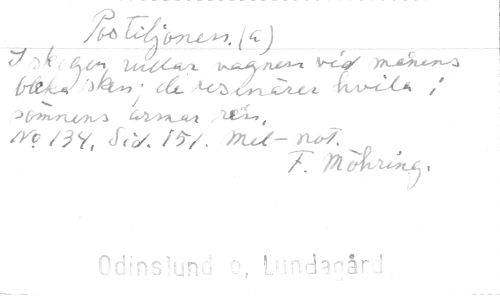 Postiljonen. (a)
I skogen rullar vagnen vid månens
bleka sken; de resenärer hvila i
sömnens armar ren.
No 134. Sid. 151. Mel-not.
F. Möhring.
Odinslund o, Lundagård